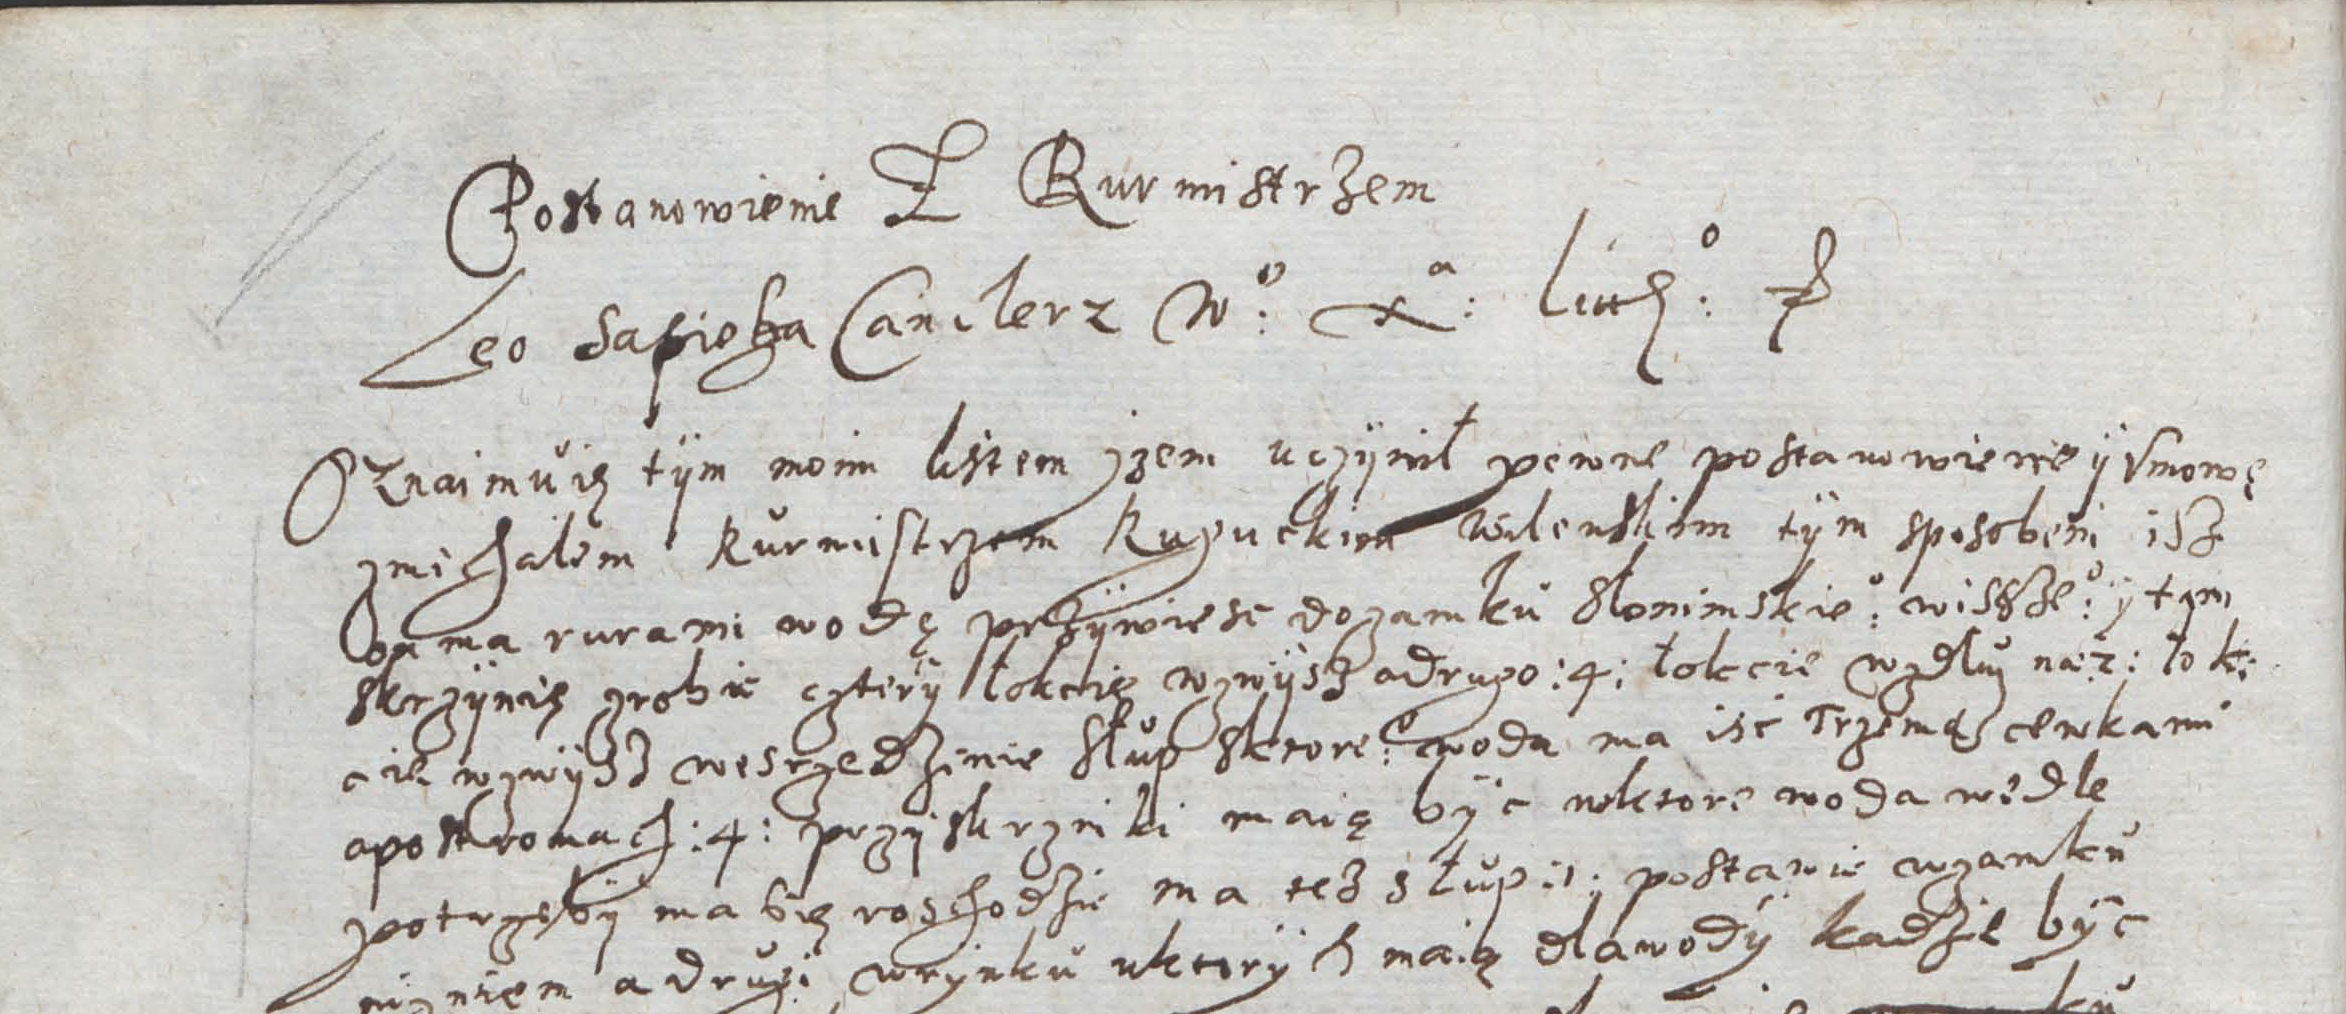 Postanowienie Z Rurmistrzem
Leo Sapieha Canclerz Wº: X.ª: Littº:
Oznaimuię tÿm moim listem jzem uczÿnił pewne postanowienie ÿ Vmowę
zmichalem Rurmistrzem Kupuckim Wilenskim tÿm sposobem isz
on ma rurami wodę przÿwiesc do zamku Słonimskieº: wisszeº: ÿ tam
skrzÿnię zrobic czterÿ łokcie wzwÿsz a drugo :4: łokcie wzdluz na :2: łok:
cie wzwÿsz wesrzedzinie Słup sktoreº: woda ma isc Trzemą cewkami
apostronach :4: przÿskrzinki maią bÿc wktore woda wedle
potrzebÿ ma się roschodzic ma tesz słup :1: postawic wzamku
nizniem a drugi wrÿnku uktorÿch maią dlawodÿ kadzie bÿc